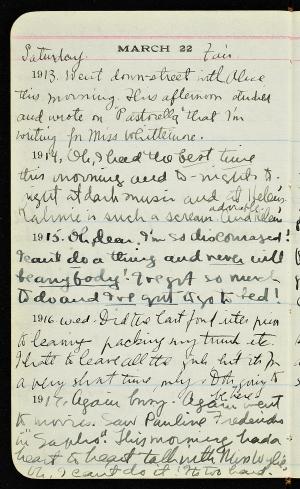 MARCH 22
Saturday. Fair
1913. Went down-street with Alice
this morning. This afternoon studied
and wrote on "Pastorella" that I'm
writing for Miss Whittemore.
1914. Oh, I had the best time
this morning and to-night
right at dark music and at Helen's
is such a scream. and Helen
adorable.
1915. Oh, dear. I'm so discouraged!
I can't do a thing and never will
be anybody! I've got so much
to do and I've got to go to bed!
1916. Wed. Did the last fond rites prior
to leaving packing my trunk etc.
I hate to leave all the girls but it's for
a very short time only. going to
be here
1917. Again busy. Again went
to movies. Saw Pauline Frederick
in "Sapho". This morning had a
heart to heart talk with Miss Wylie
Oh, I can't do it! It's too hard.